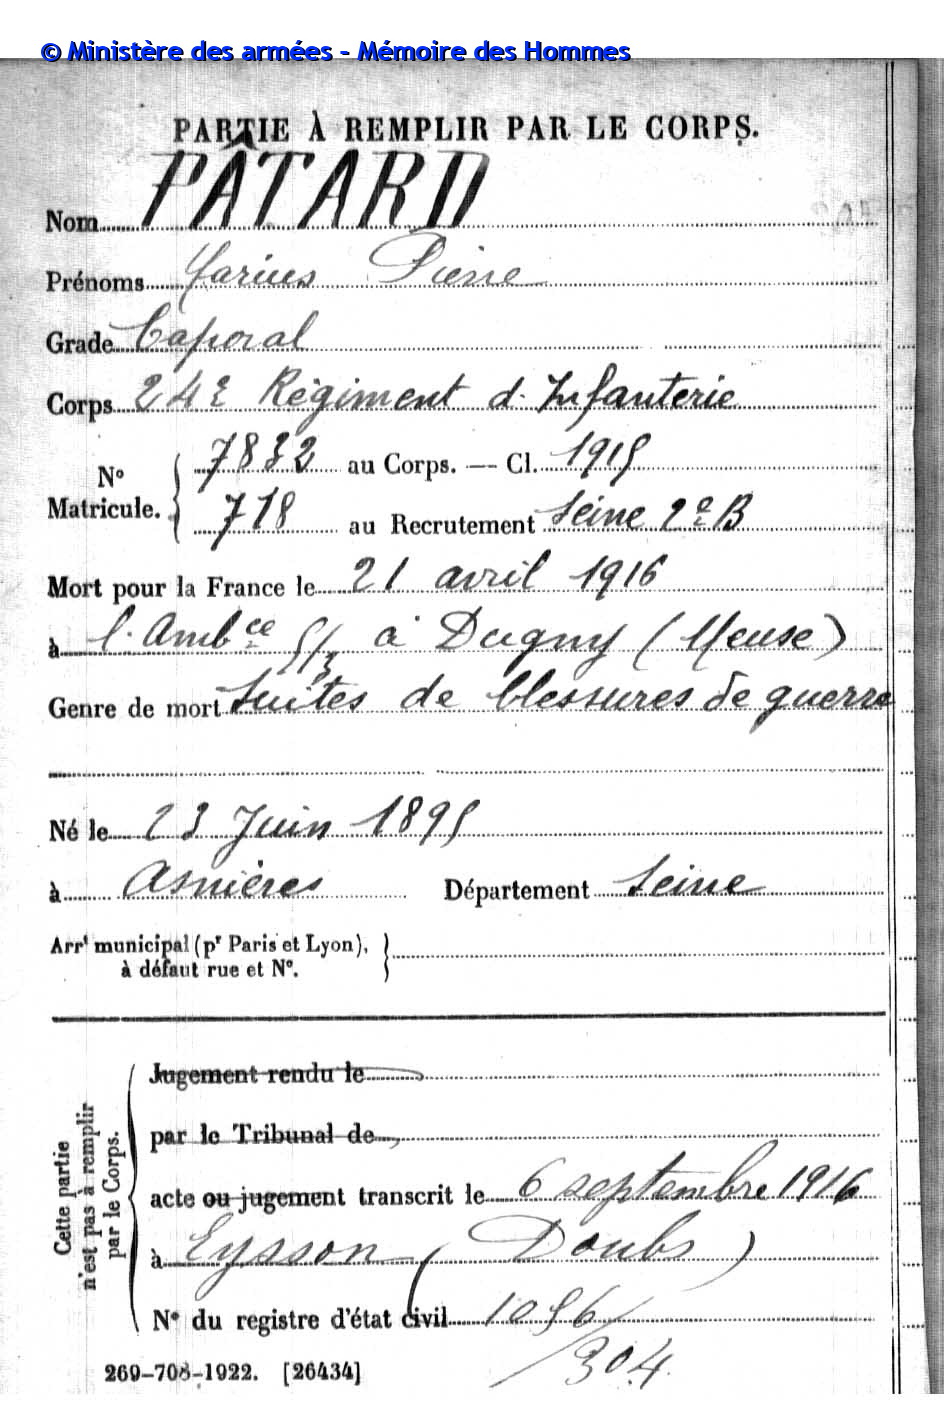 © Ministère des armées - Mémoire des Hommes
PARTIE À REMPLIR PAR LE CORPS.
Nom PÂTARD
Prénoms Marius Pierre
Grade Caporal
Corps 24e Régiment d'Infanterie
No Matricule. { 7832 au Corps. — Cl. 1915
718 au Recrutement Seine 2e B
Mort pour la France le 21 avril 1916
à l'Ambce 5/3 à Dugny (Meuse)
Genre de mort Suites de blessures de guerre
Né le 23 Juin 1895
à Asnières Département Seine
Arrt municipal (pr Paris et Lyon), }
à défaut rue et No.
Cette partie
n'est pas à remplir
par le Corps.
Jugement rendu le
par le Tribunal de
acte ou jugement transcrit le 6 septembre 1916
à Eysson (Doubs)
No du registre d'état civil 1056/304
269-708-1922. [26434]